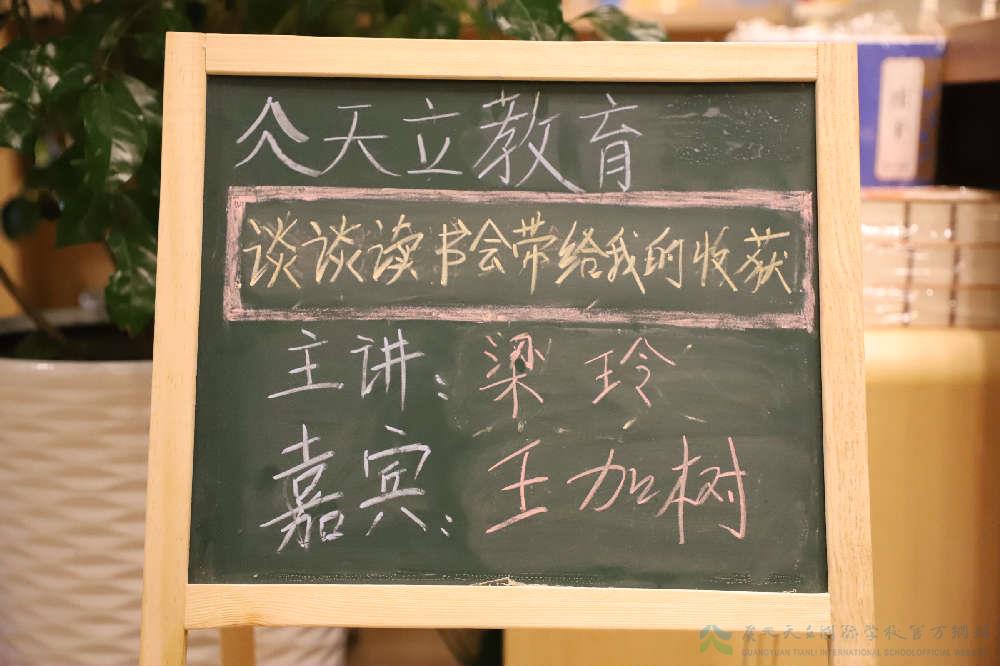 天立教育
谈谈读书会带给我的收获
主讲：梁玲
嘉宾：王加树
广元天立国际学校官方网站
GUANGYUAN TIANLI INTERNATIONAL SCHOOLOFFICIAL WEBSITE